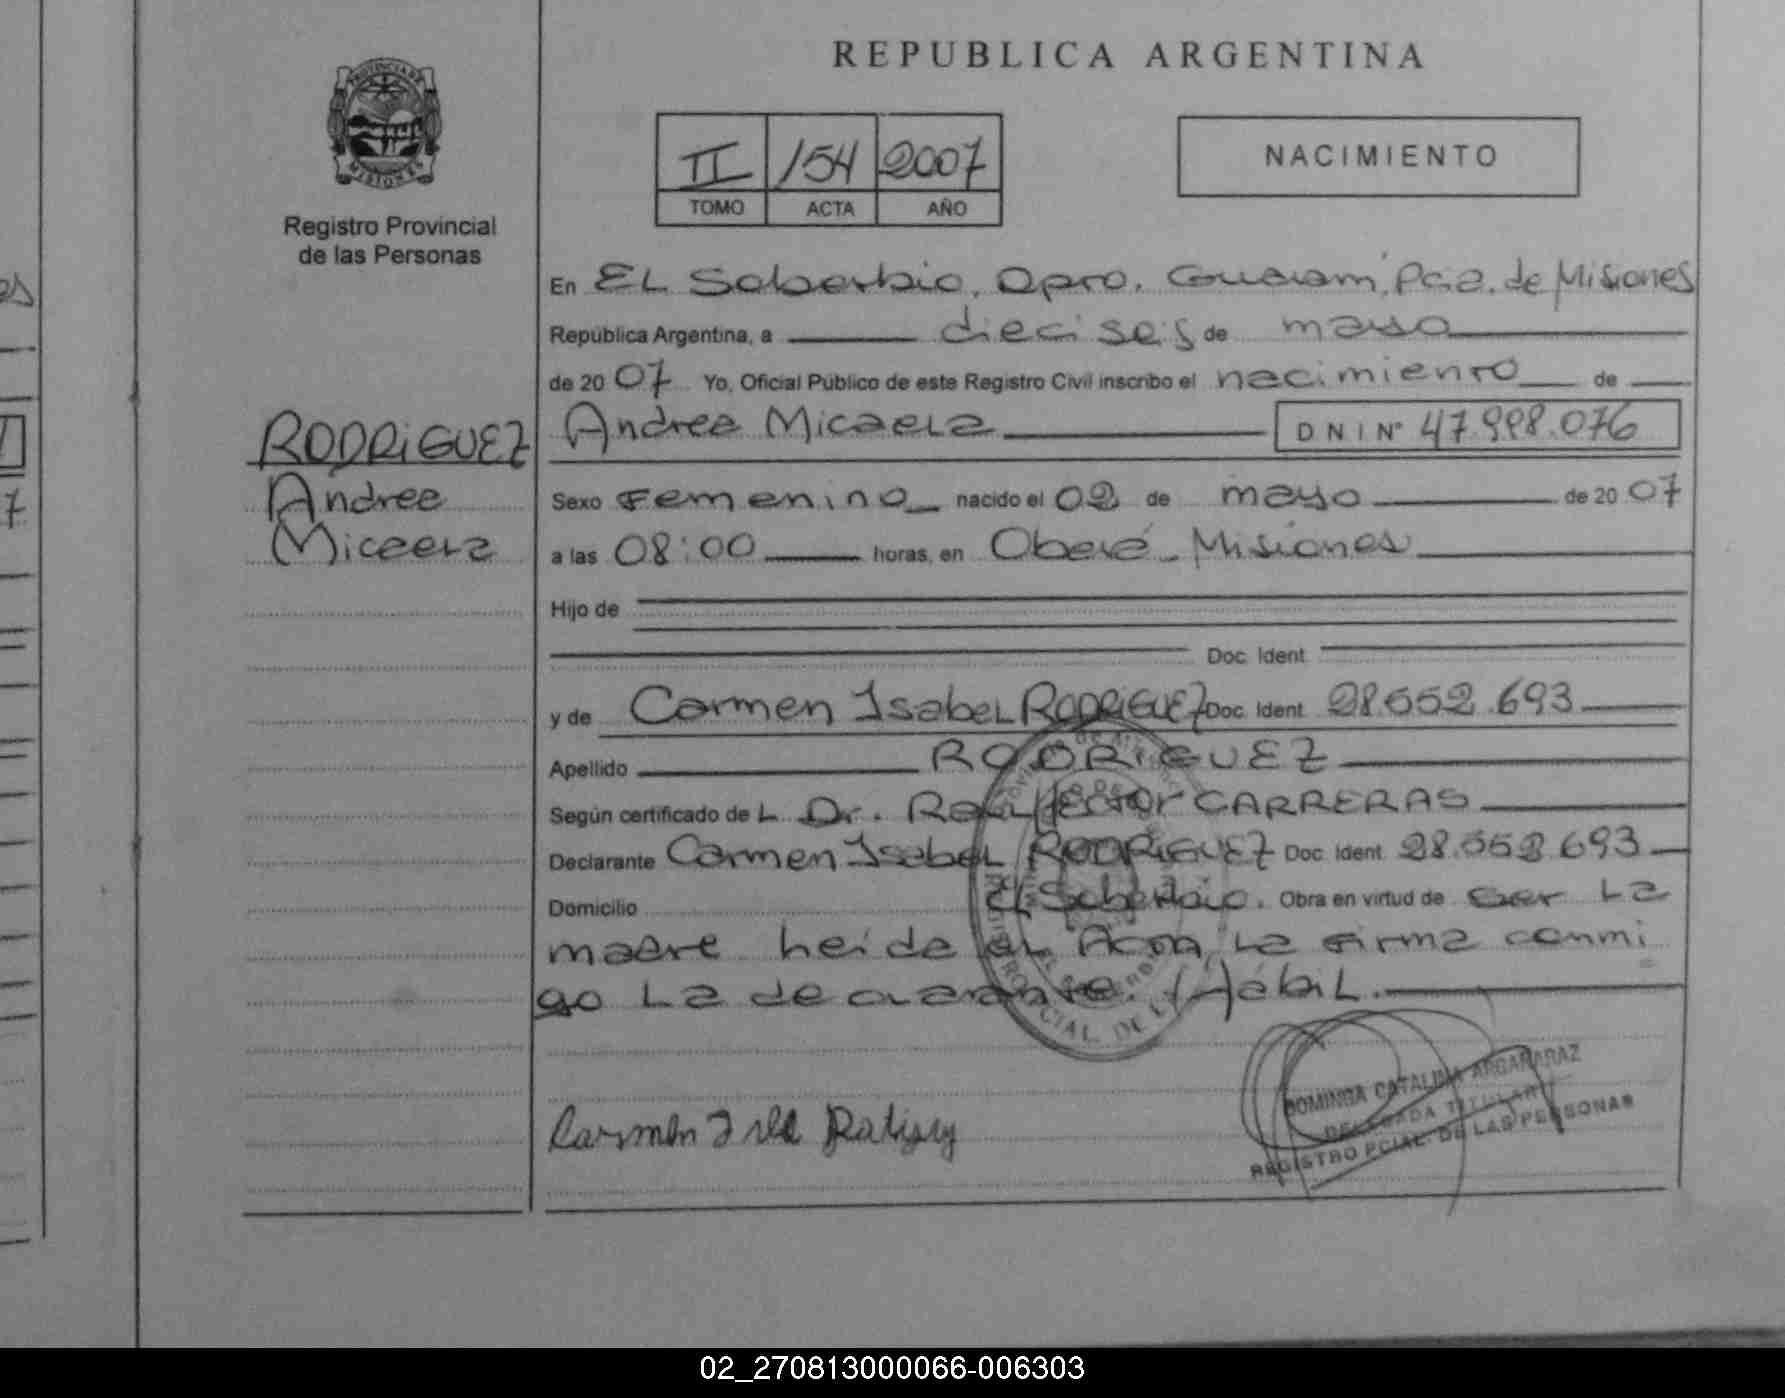 REPUBLICA ARGENTINA
PROVINCIA DE
MISIONES
Registro Provincial
de las Personas
II 154 2007
TOMO ACTA AÑO
NACIMIENTO
En EL Soberbio, Dpto. Guaraní, Pcia. de Misiones
República Argentina, a dieciseis de mayo
de 2007 Yo, Oficial Público de este Registro Civil inscribo el nacimiento de
RODRIGUEZ Andrea Micaela DNI Nº 47.998.076
Andrea
Micaela
Sexo Femenino nacido el 02 de mayo de 2007
a las 08:00 horas, en Oberá - Misiones
Hijo de
Doc. Ident.
y de Carmen Isabel RODRIGUEZ Doc. Ident. 28.552.693
Apellido RODRIGUEZ
Según certificado de L Dr. Raul Hector CARRERAS
Declarante Carmen Isabel RODRIGUEZ Doc. Ident. 28.552.693
Domicilio El Soberbio. Obra en virtud de ser La
madre heida el Acta, La firma conmi
go La declarante. (H)ábil.
Carmen
DOMINGA CATALINA ARGAÑARAZ
DELEGADA TITULAR
REGISTRO PCIAL. DE LAS PERSONAS
02_270813000066-006303